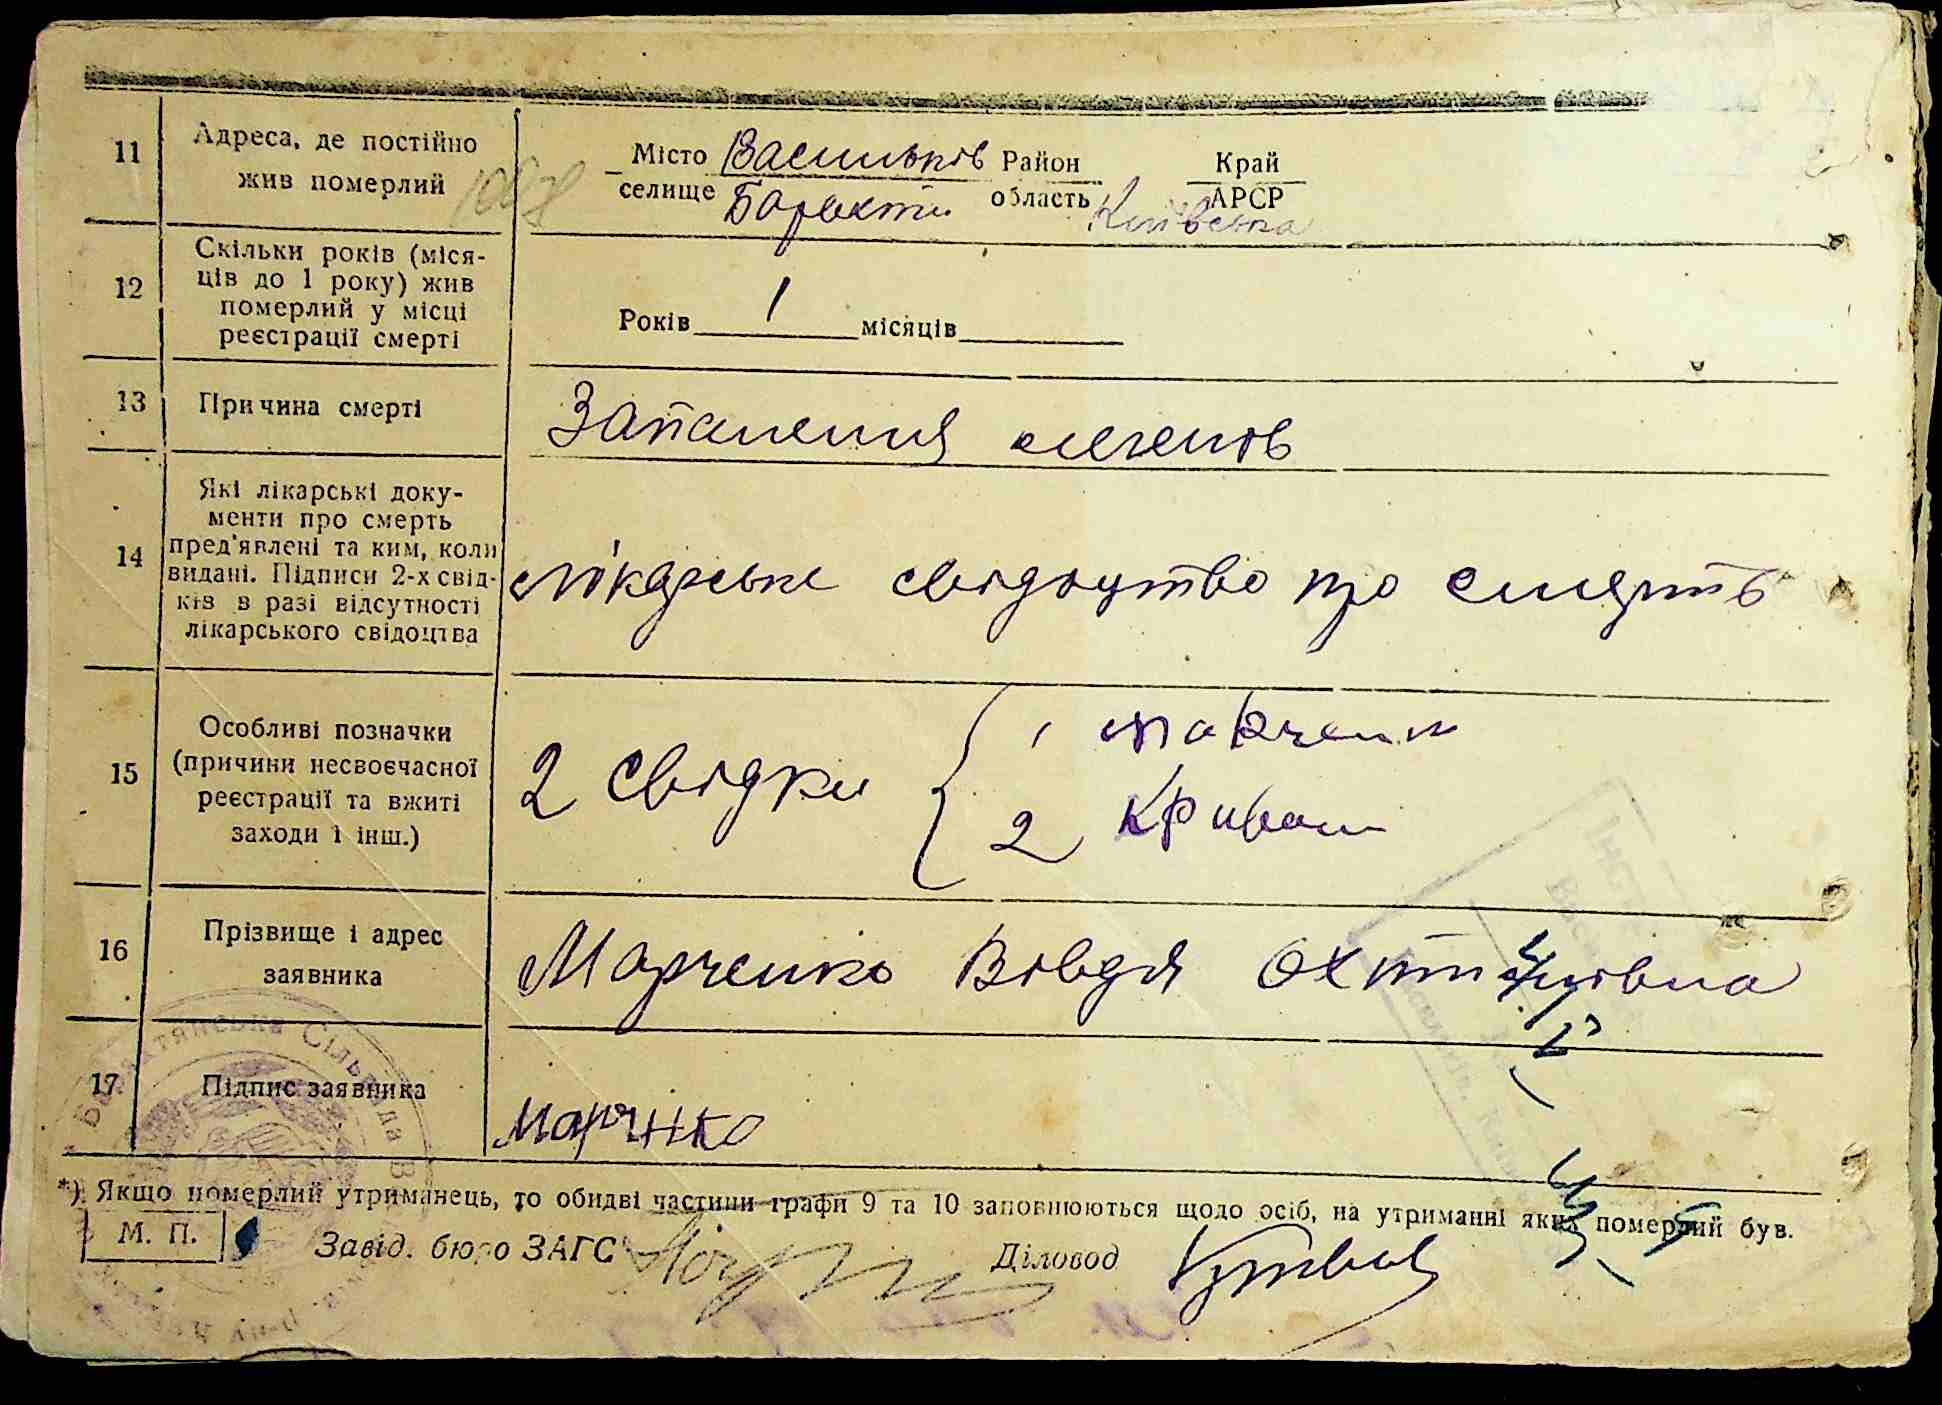 11
Адреса, де постійно
жив померлий
Місто Васильків Район Край
селище Барахти область Київська АРСР
12
Скільки років (міся-
ців до 1 року) жив
померлий у місці
реєстрації смерті
Років 1 місяців
13
Причина смерті
Запалення легенів
14
Які лікарські доку-
менти про смерть
пред'явлені та ким, коли
видані. Підписи 2-х свід-
ків в разі відсутності
лікарського свідоцтва
лікарське свідоцтво про смерть
15
Особливі позначки
(причини несвоєчасної
реєстрації та вжиті
заходи і інш.)
2 свідки
1 Марченк
2
16
Прізвище і адрес
заявника
Марченко Вівдя
17
Підпис заявника
Марчнко
*) Якщо померлий утриманець, то обидві частини графи 9 та 10 заповнюються щодо осіб, на утриманні яких померлий був.
М. П.
Завід. бюро ЗАГС
Діловод